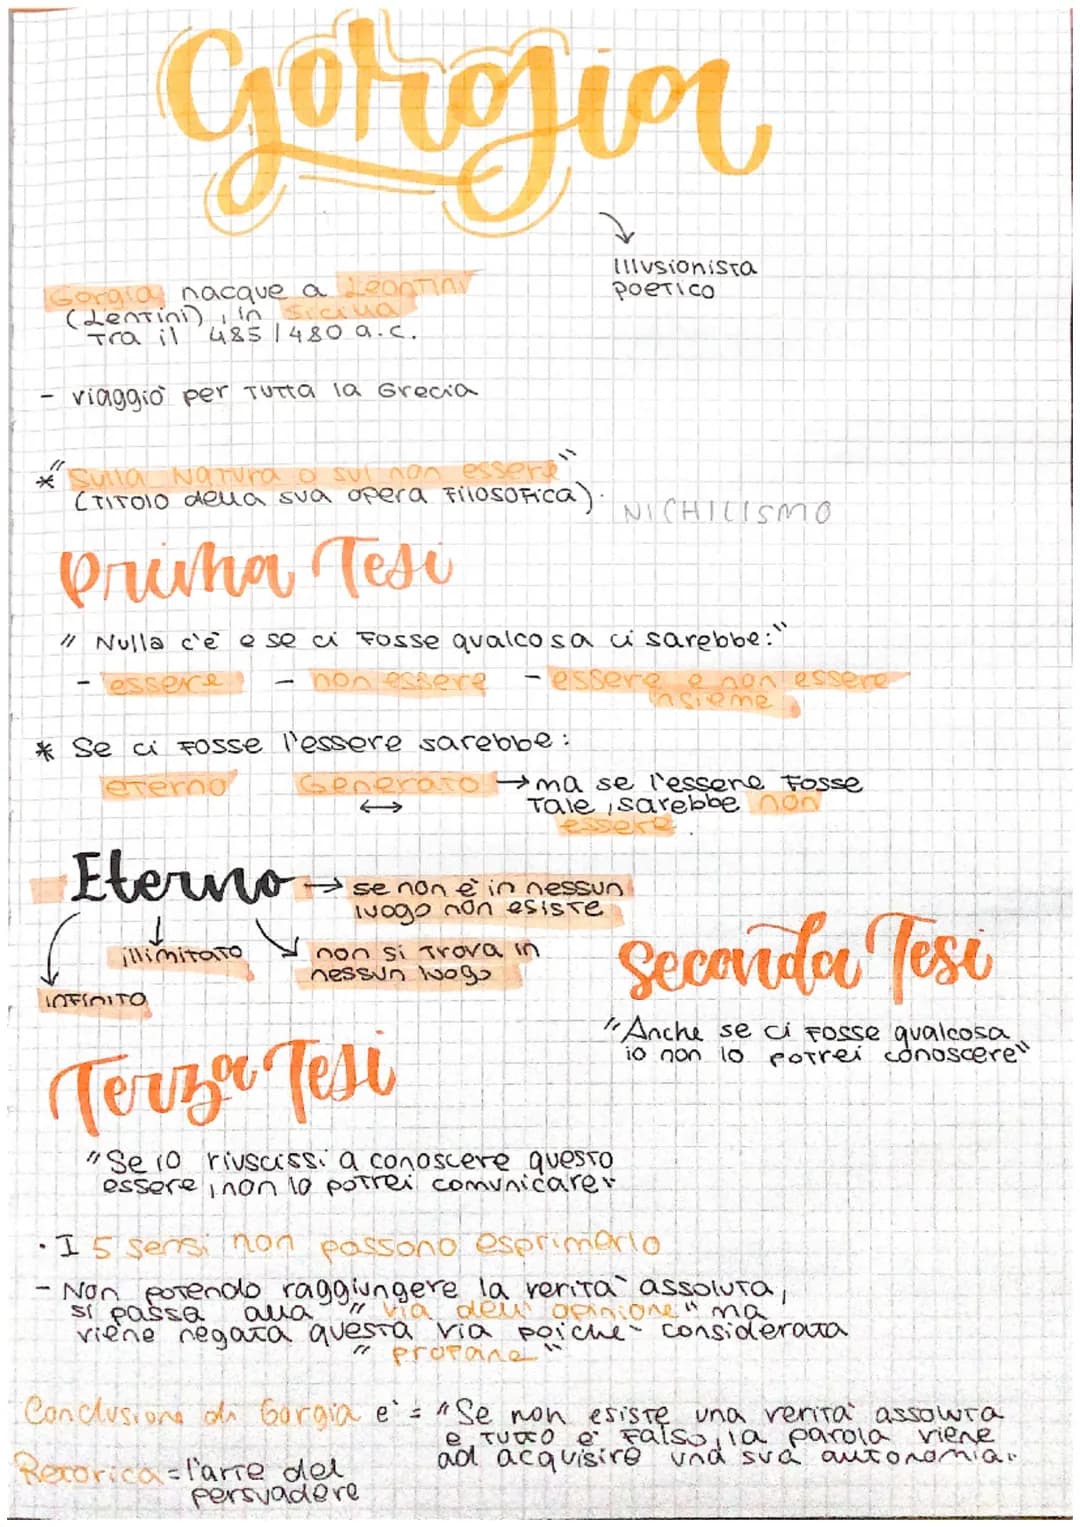 Gorgia
Illusionista
poetico
Gorgia nacque a Leontini
(Lentini), in Sicilia
Tra il 485/480 a.c.
- viaggiò per tutta la Grecia
* "Sulla Natura o sul non essere"
(Titolo della sua opera filosofica).
NICHILISMO
Prima Tesi
" Nulla c'è e se ci fosse qualcosa ci sarebbe:"
- essere - non essere - essere e non essere
insieme
* Se ci fosse l'essere sarebbe:
eterno Generato → ma se l'essere fosse
↔ Tale, sarebbe non
essere.
Eterno → se non è in nessun
luogo non esiste
illimitato
non si trova in
nessun luogo
infinito
Seconda Tesi
"Anche se ci fosse qualcosa
io non lo potrei conoscere"
Terza Tesi
"Se io riuscissi a conoscere questo
essere, non lo potrei comunicare"
· I 5 sensi non possono esprimerlo
- Non potendo raggiungere la verità assoluta,
si passa alla "via dell'opinione" ma
viene negata questa via poiché considerata
" profane "
Conclusione di Gorgia è = "Se non esiste una verità assoluta
e tutto è falso, la parola viene
ad acquisire una sua autonomia."
Retorica = l'arte del
persuadere